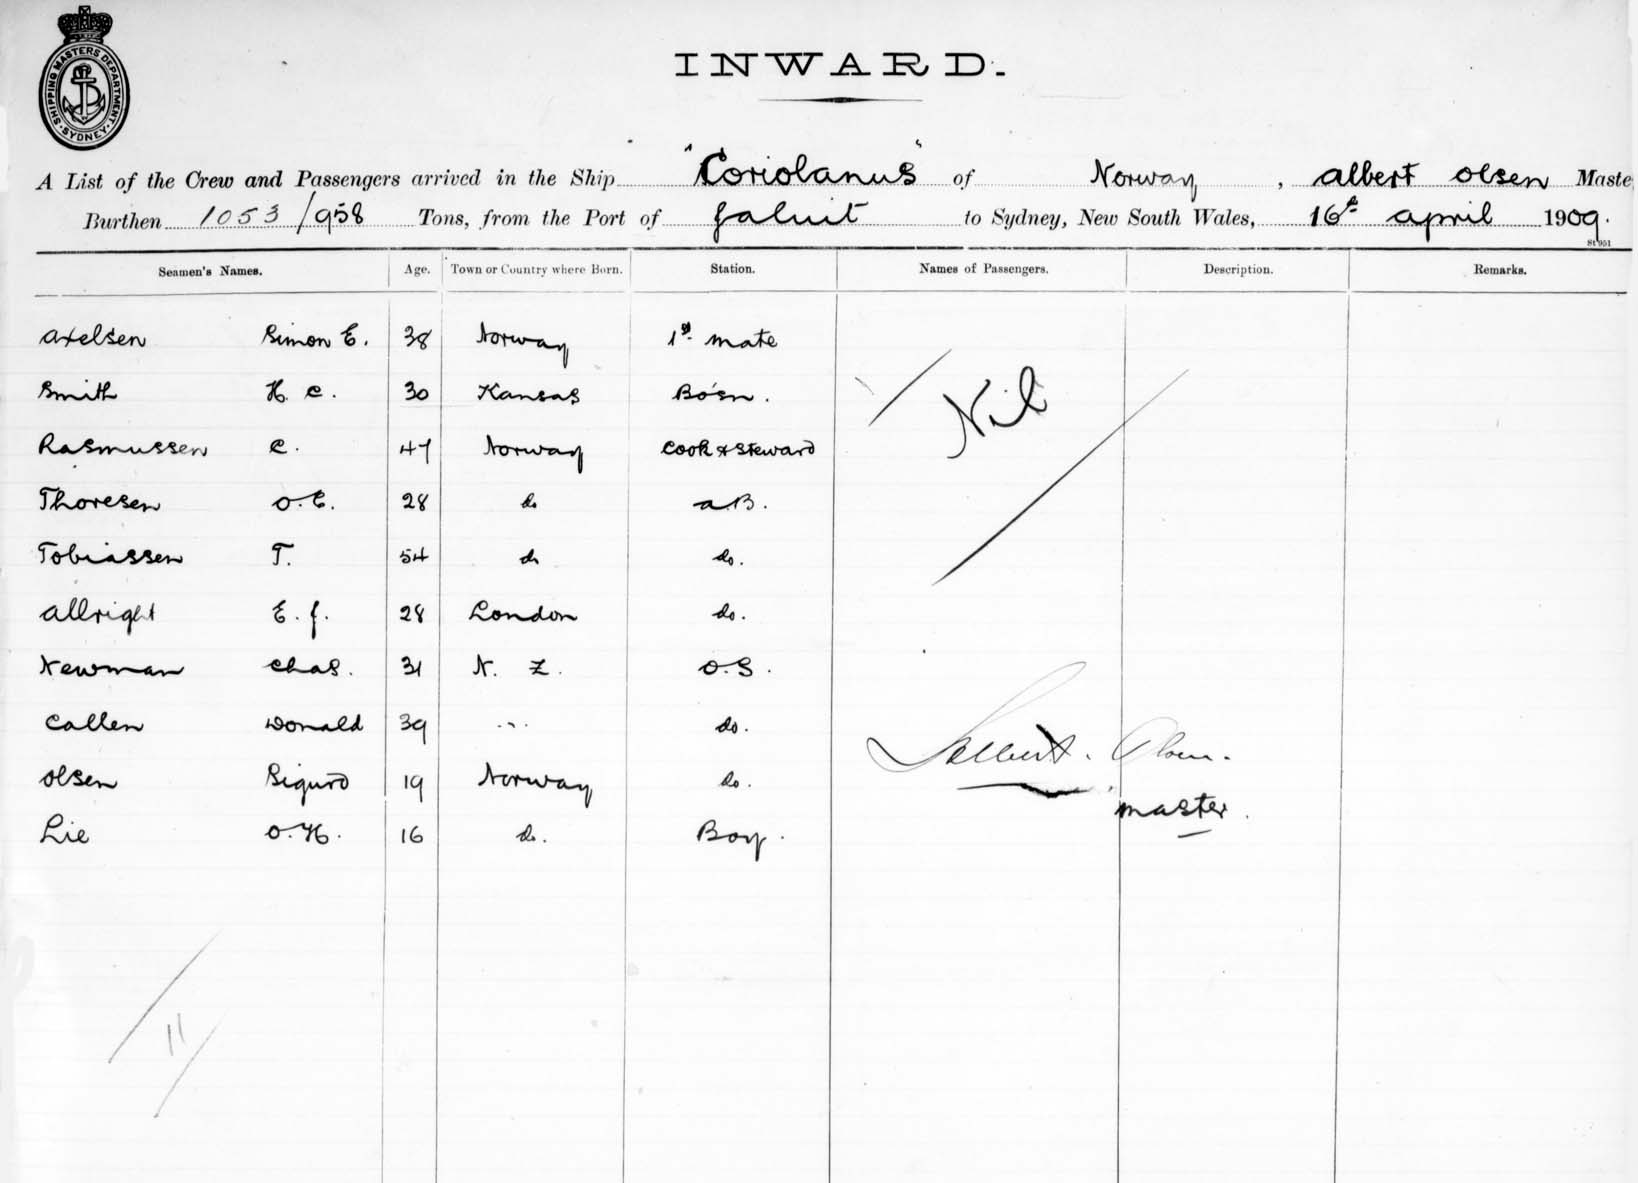 SHIPPING MASTERS DEPARTMENT
SYDNEY
INWARD.
A List of the Crew and Passengers arrived in the Ship "Coriolanus" of Norway, Albert Olsen Maste
Burthen 1053/958 Tons, from the Port of Jaluit to Sydney, New South Wales, 16th April 1909.
St 951
Seamen's Names. Age. Town or Country where Born. Station. Names of Passengers. Description. Remarks.
Axelsen Simon E. 38 Norway 1st mate
Smith H. C. 30 Kansas Bo'sn.
Nil
Rasmussen C. 47 Norway Cook & Steward
Thoresen O. E. 28 do A.B.
Tobiassen T. 54 do do.
Allright E. J. 28 London do.
Newman Chas. 31 N. Z. O.S.
Callen Donald 39 " do.
Albert Olsen.
Olsen Sigurd 19 Norway do.
master.
Lie O. H. 16 do. Boy.
11